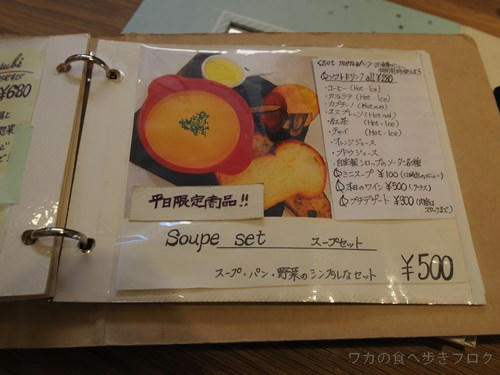 ¥680
<Set menu>
ソフトドリンク all ¥280
・コーヒー (Hot・Ice)
・カフェラテ (Hot・Ice)
・カプチーノ (Hot)
・エスプレッソ (Hot)
・紅茶 (Hot・Ice)
・チャイ (Hot・Ice)
・オレンジジュース
・ブドウジュース
・自家製シロップのソーダ各種
ミニスープ ¥100
本日のワイン ¥500 (グラス)
プチデザート ¥300
平日限定商品!!
Soupe set スープセット
スープ・パン・野菜のシンプルなセット
¥500
ワカの食べ歩きブログ